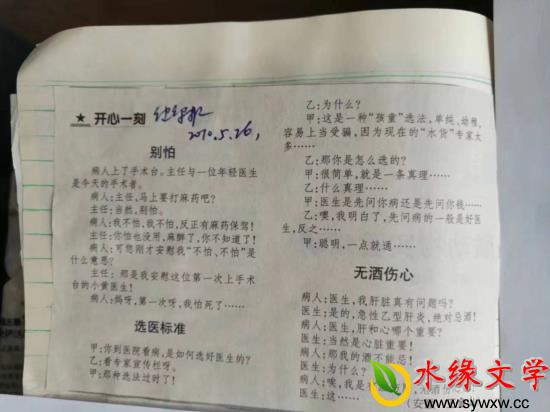 ★ 开心一刻
2010.5.26,
别怕
病人上了手术台。主任与一位年轻医生
是今天的手术者。
病人:主任,马上要打麻药吧?
主任:当然,别怕。
病人:我不怕,我不怕,反正有麻药保驾!
主任:你怕也没用,麻醉了,你不知道了!
病人:可您刚才安慰我“不怕、不怕”是
什么意思?
主任:那是我安慰这位第一次上手术
台的小黄医生!
病人:妈呀,第一次呀,我怕死了……
选医标准
甲:你到医院看病,是如何选好医生的?
乙:看专家宣传栏呀。
甲:那种选法过时了!
乙:为什么?
甲:这是一种“孩童”选法,单纯、幼稚,
容易上当受骗,因为现在的“水货”专家太
多……
乙:那你是怎么选的?
甲:很简单,就是一条真理……
乙:什么真理……
甲:医生是先问你病还是先问你钱……
乙:噢,我明白了,先问病的一般是好医
生,反之……
甲:聪明,一点就通……
无酒伤心
病人:医生,我肝脏真有问题吗?
医生:是的,急性乙型肝炎,绝对忌酒!
病人:医生,肝和心哪个重要?
医生:当然是心脏重要!
病人:那我的酒不能忌!
医生:为什么?
病人:唉,我是
无酒伤心
医生:这……
水缘文学
www.sywxw.cc